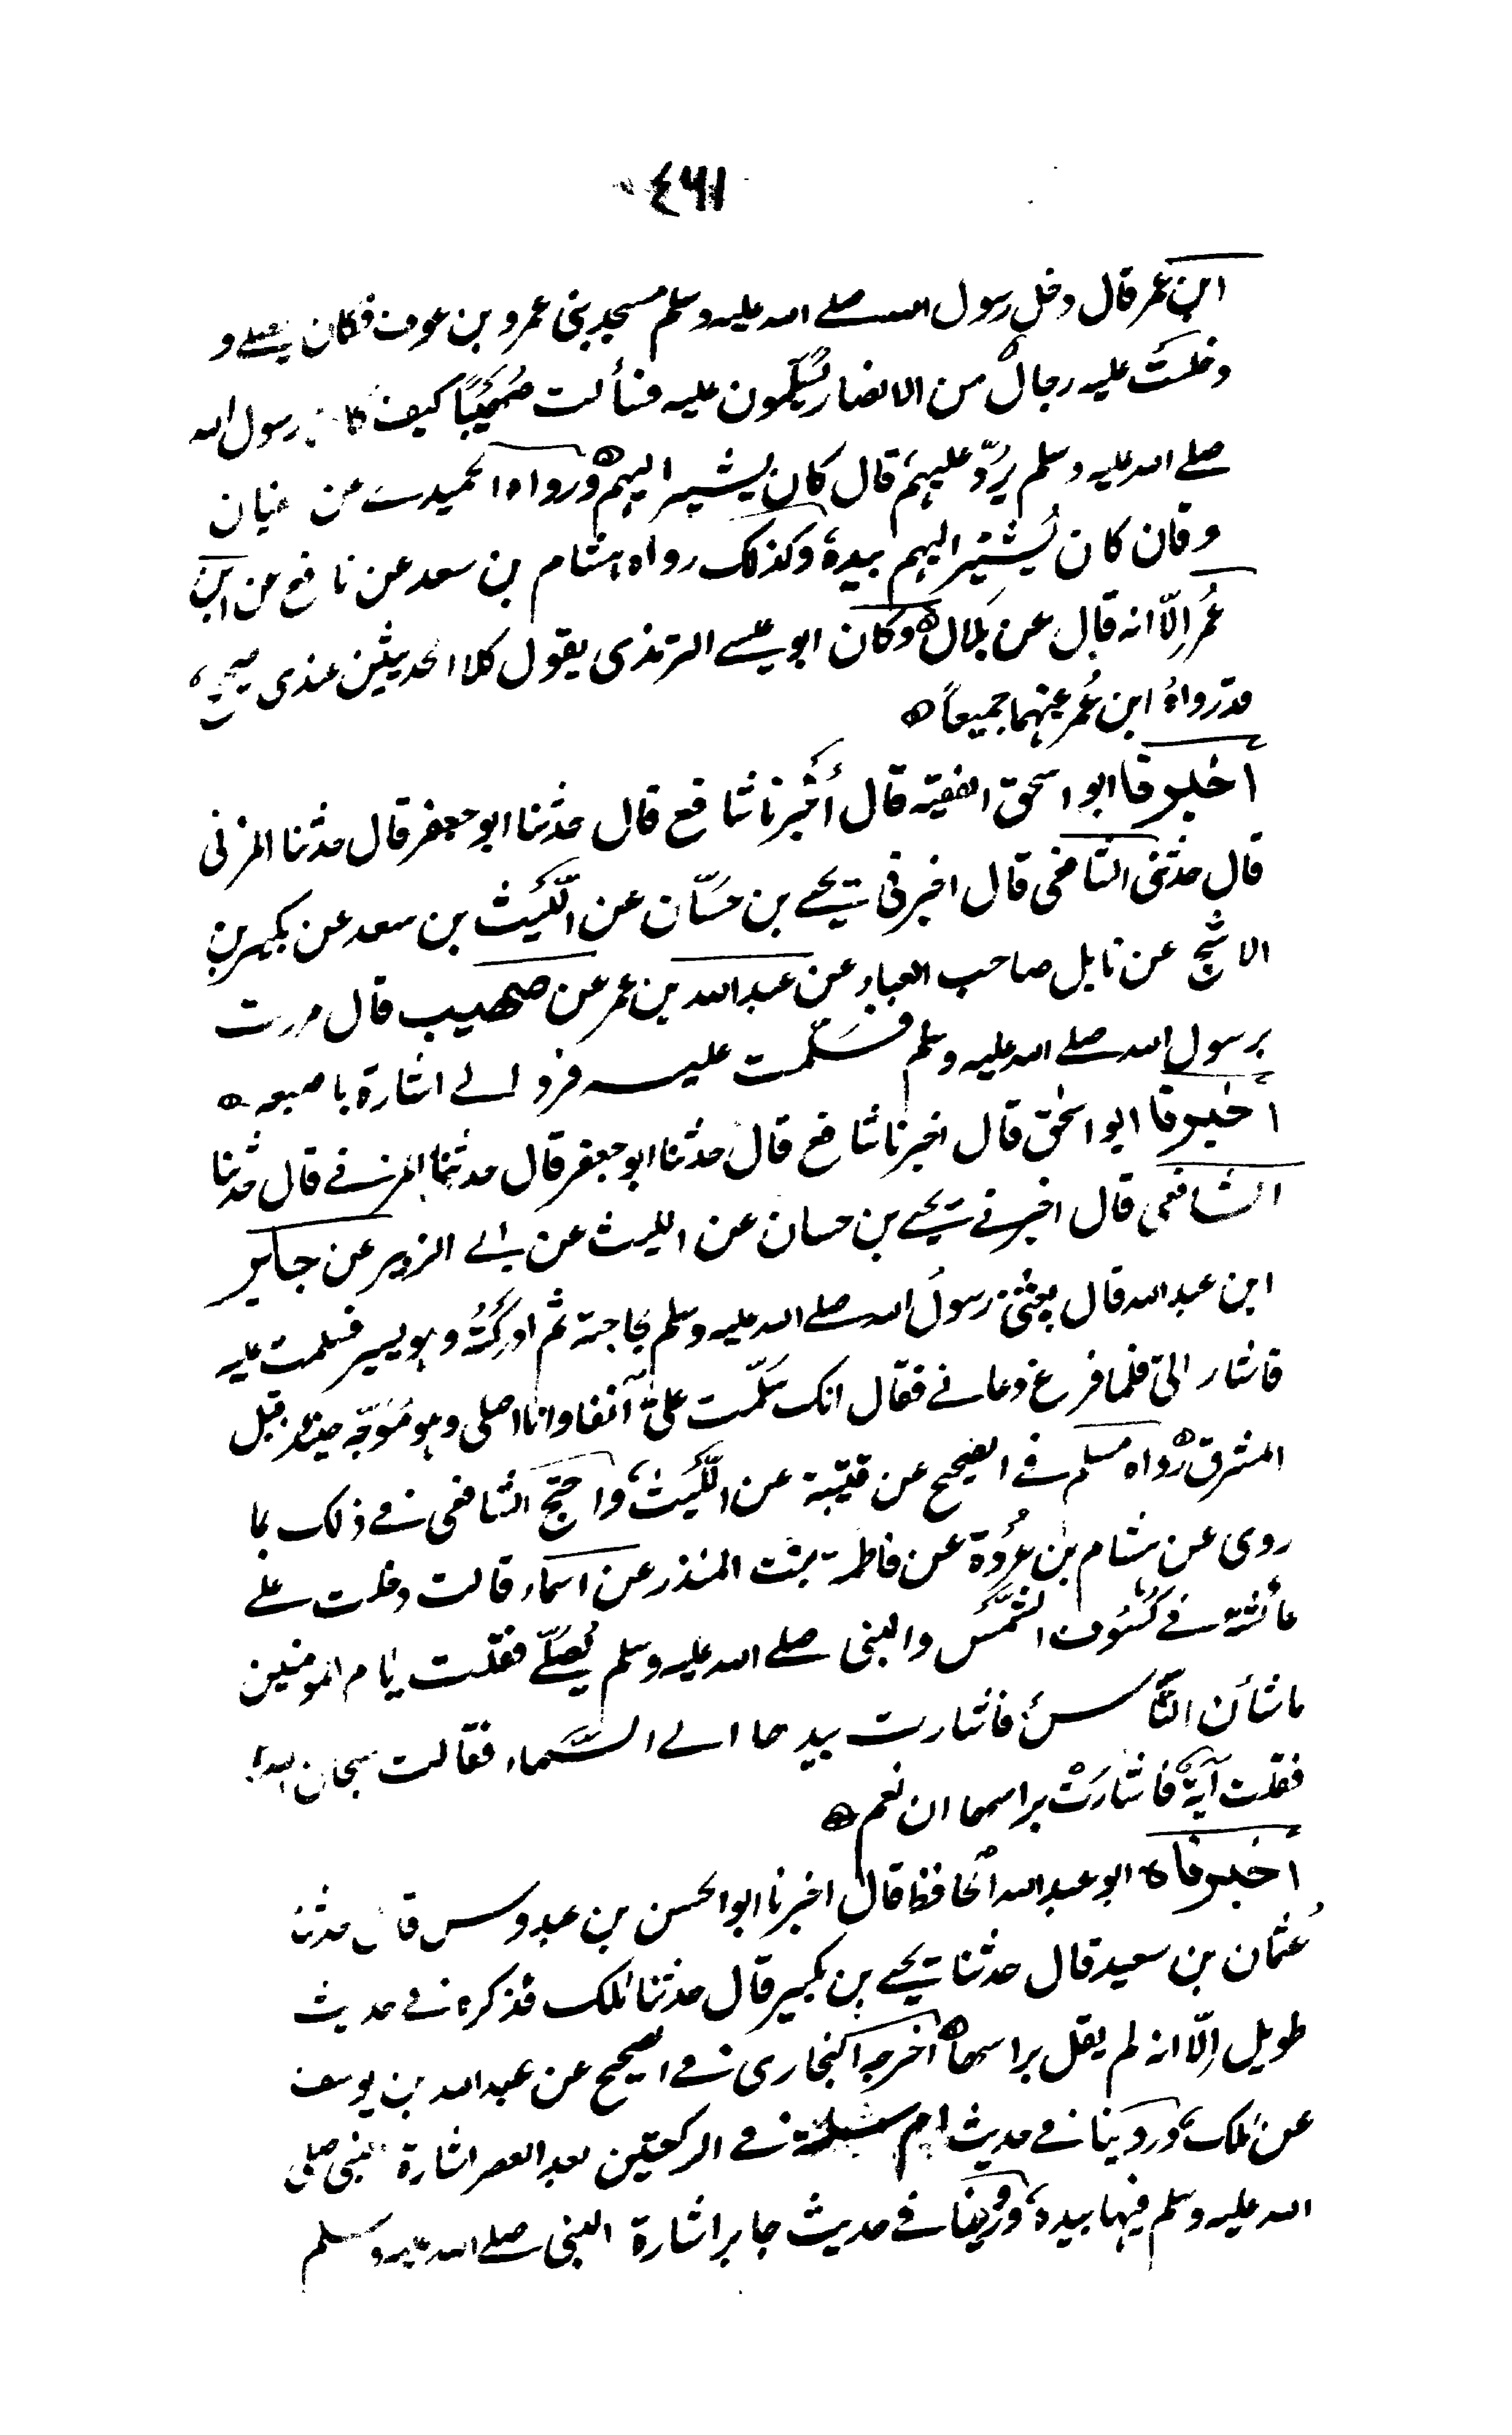 ٤٦١
ابن عمر قال دخل رسول الله صلى الله عليه وسلم مسجد بنى عمرو بن عوف فكان يصلے و
دخلت عليه رجالٌ من الانصار يُسَلِّمون عليه فسألت صُهَيبًا كيف كان رسول الله
صلے الله عليه وسلم يَرُدّ عليهم قال كان يشير اليهم ورواه الحميدى عن سفيان
وقال كان يُشير اليهم بيده وكذلك رواه هشام بن سعد عن نافع عن ابن
عُمر إلّا انه قال عن بلال وكان ابو عيسے الترمذى يقول كلا الحديثين عندى صحيح
قد رواه ابن عُمر عنهما جميعاً
أخبرنا ابو اسحق الفقيه قال أخبرنا شافع قال حدثنا ابو جعفر قال حدثنا المزنى
قال حدثنى الشافعى قال اخبرنى يحيے بن حسّان عن اللّيث بن سعد عن بكير بن
الاشج عن نابل صاحب العباء عن عبد الله بن عمر عن صهيب قال مررت
برسول الله صلے الله عليه وسلم فسلّمت عليه فرد الے اشارة باصبعه
أخبرنا ابو اسحٰق قال اخبرنا شافع قال حدثنا ابو جعفر قال حدثنا المزنے قال حدثنا
الشافعى قال اخبرنے يحيے بن حسان عن الليث عن ابے الزبير عن جابر
ابن عبد الله قال بعثنى رسولُ الله صلے الله عليه وسلم لحاجة ثم ادركتُه وهو يسير فسلمت عليه
فاشار الىّ فلما فرغ دعانے فقال انك سَلّمت علىّ آنفا وانا اصلى وهو مُوَجّه حينئذ قبل
المشرق رواه مسلم فے الصحيح عن قتيبة عن اللّيث واحتج الشافعى فے ذلك بما
روى عن هشام بن عُروة عن فاطمة بنت المنذر عن اسماء قالت دخلت علے
عائشة فے كسُوف الشّمس والنبى صلے الله عليه وسلم يُصلّے فقلت يا ام المومنين
ما شأن النّاس فاشارت بيدها الے السّماء فقالت سبحان الله
فقلت آيةٌ فاشارَتْ براسها ان نعم
أخبرناه ابو عبد الله الحافظ قال اخبرنا ابو الحسن بن عبدوس قال حدثنا
عُثمان بن سعيد قال حدثنا يحيے بن بكير قال حدثنا ملك فذكره فے حديث
طويل إلّا انه لم يقل براسها اخرجه البخارى فے الصحيح عن عبد الله بن يوسف
عن ملك وروينا فے حديث ام سلمة فے الركعتين بعد العصر اشارة النبى صلى
الله عليه وسلم فيها بيده وروينا فے حديث جابر اشارة النبى صلے الله عليه وسلم